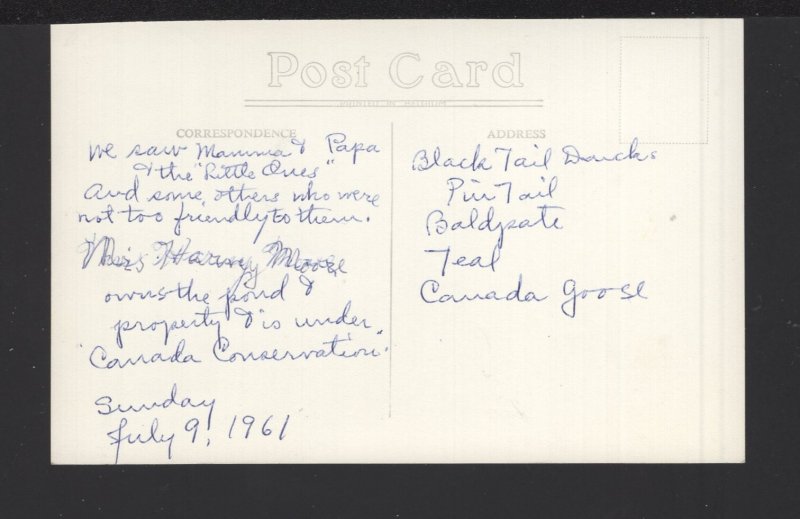 Post Card
PRINTED IN BELGIUM
CORRESPONDENCE
we saw Mamma & Papa
& the "Little Ones"
And some others who were
not too friendly to them.
Harvey Moore
owns the pond &
property & is under
"Canada Conservation."
Sunday
July 9, 1961
ADDRESS
Black Tail Ducks
Pin Tail
Baldpate
Teal
Canada Goose